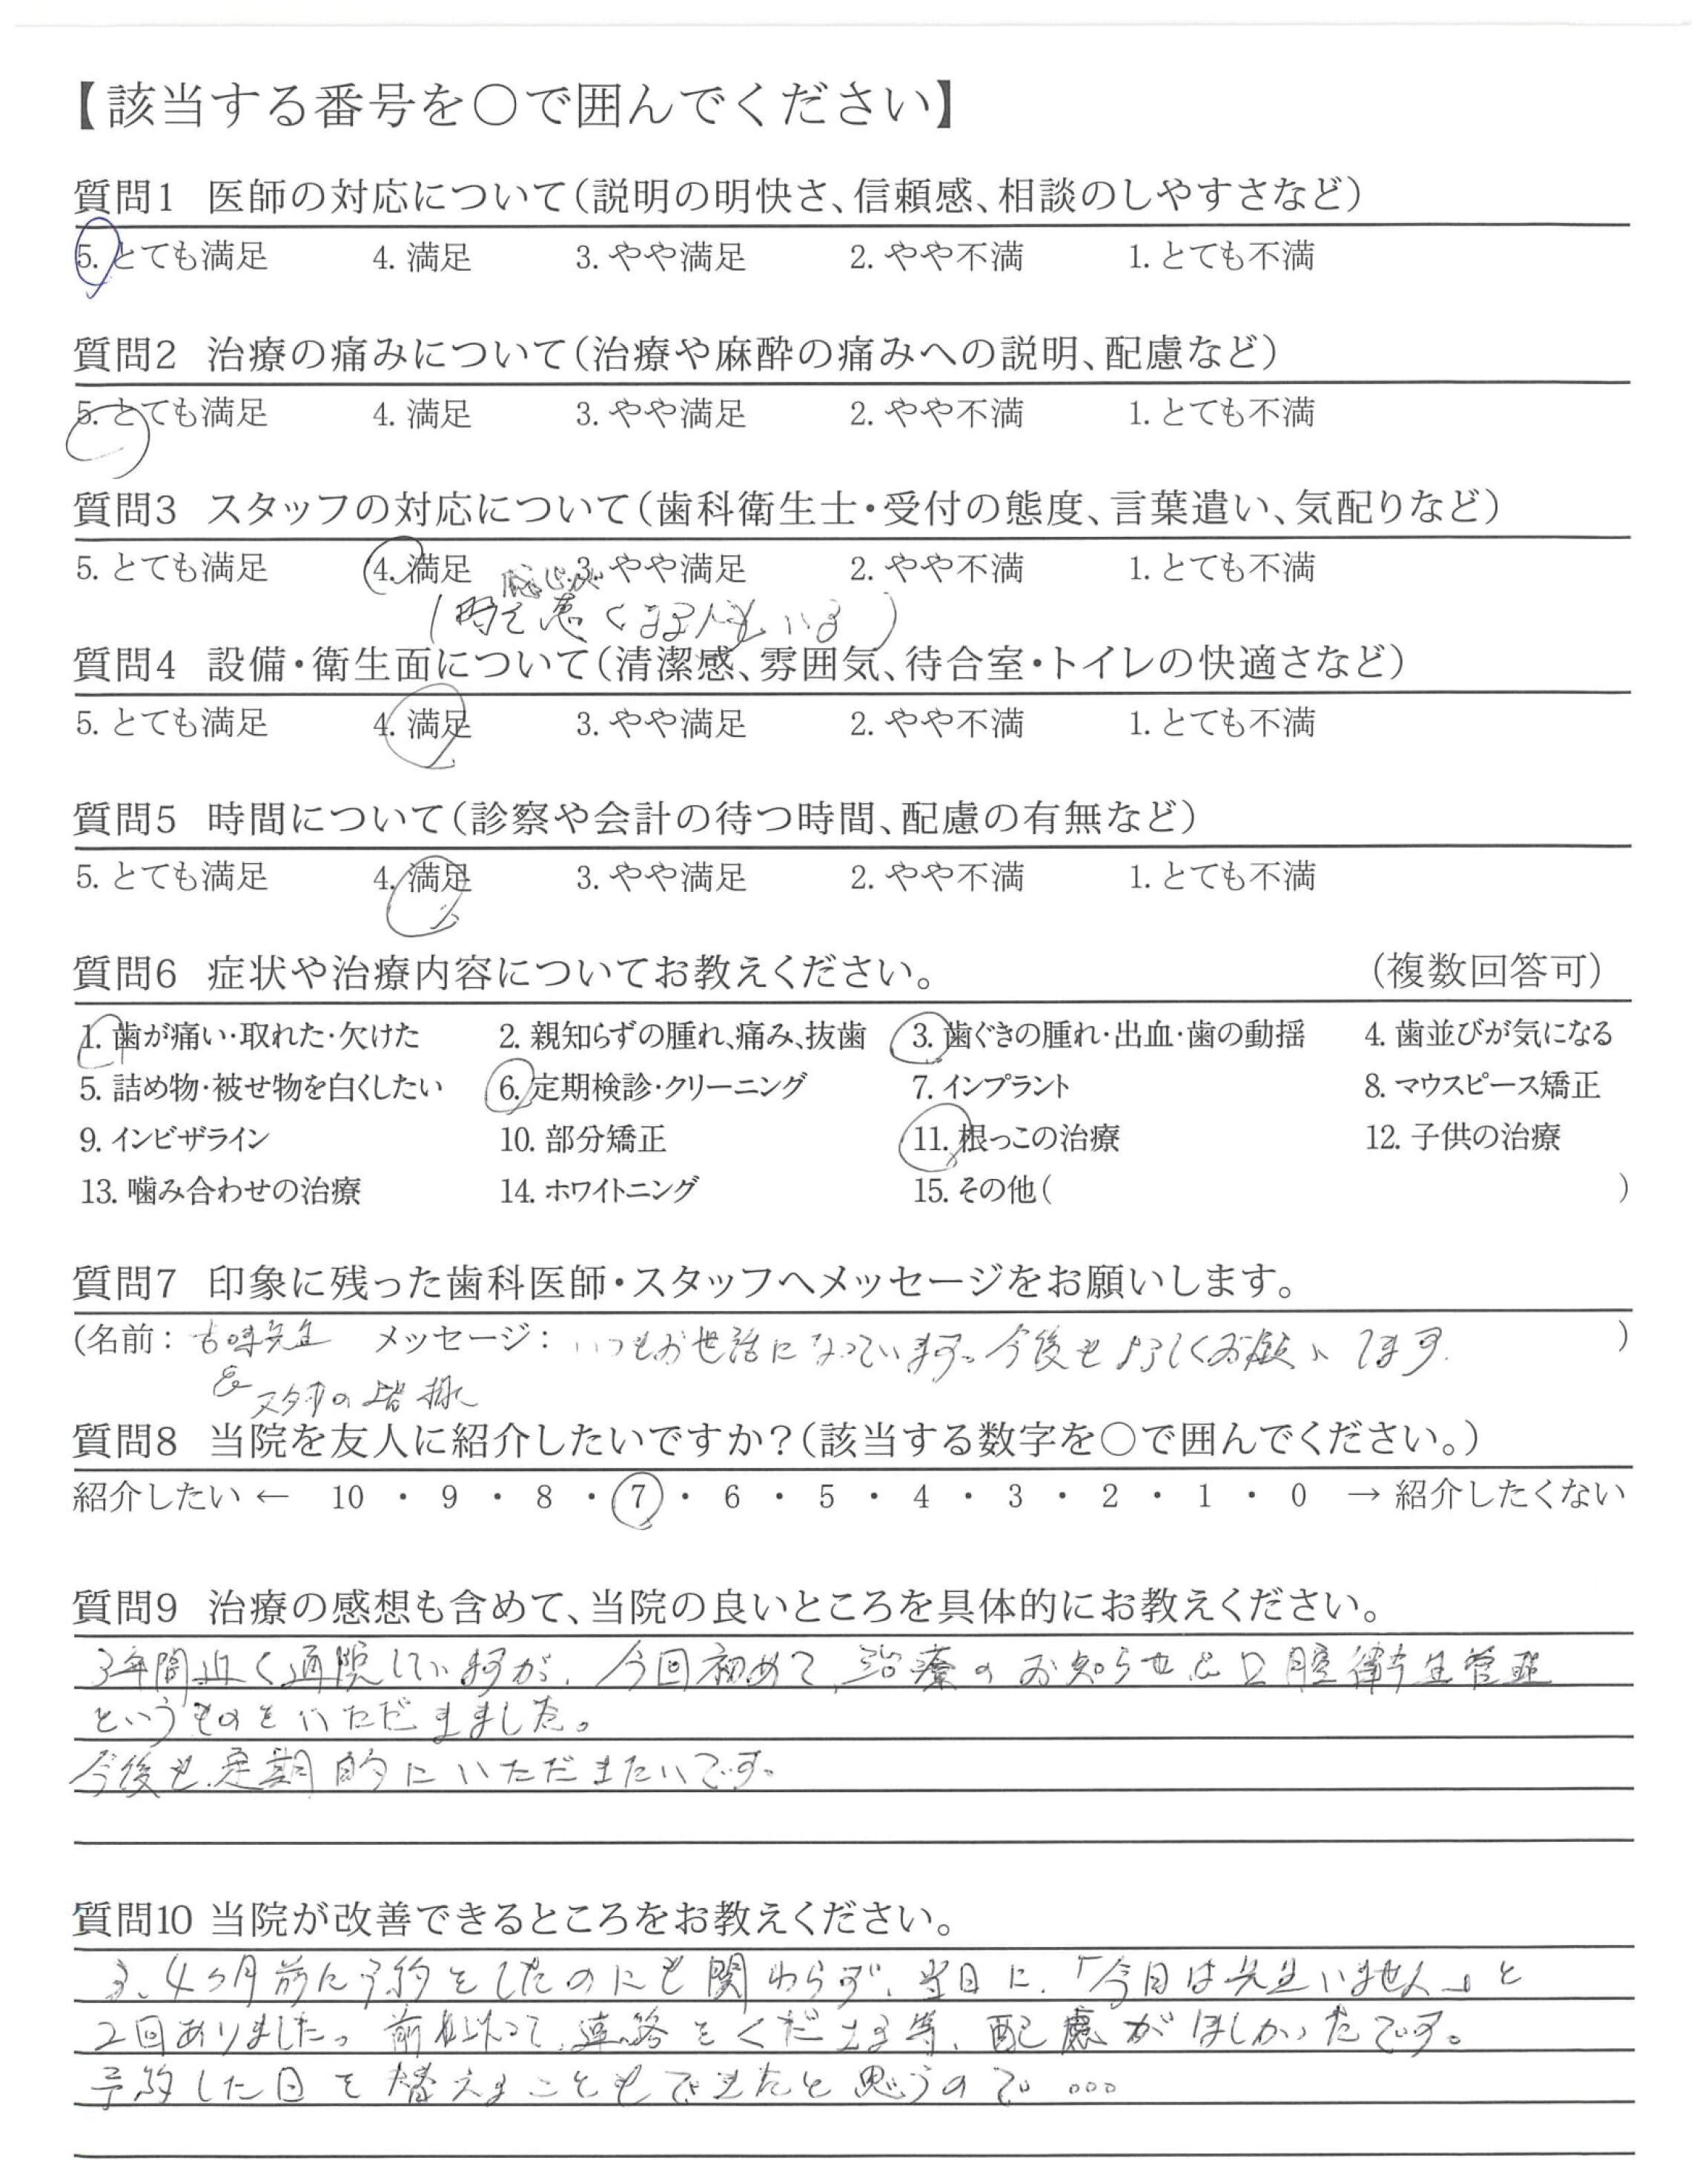 【該当する番号を〇で囲んでください】
質問1 医師の対応について(説明の明快さ、信頼感、相談のしやすさなど)
5. とても満足 4. 満足 3. やや満足 2. やや不満 1. とても不満
質問2 治療の痛みについて(治療や麻酔の痛みへの説明、配慮など)
5. とても満足 4. 満足 3. やや満足 2. やや不満 1. とても不満
質問3 スタッフの対応について(歯科衛生士・受付の態度、言葉遣い、気配りなど)
5. とても満足 4. 満足 3. やや満足 2. やや不満 1. とても不満
感じが
(悪くなる人もいる)
質問4 設備・衛生面について(清潔感、雰囲気、待合室・トイレの快適さなど)
5. とても満足 4. 満足 3. やや満足 2. やや不満 1. とても不満
質問5 時間について(診察や会計の待つ時間、配慮の有無など)
5. とても満足 4. 満足 3. やや満足 2. やや不満 1. とても不満
質問6 症状や治療内容についてお教えください。 (複数回答可)
1. 歯が痛い・取れた・欠けた 2. 親知らずの腫れ、痛み、抜歯 3. 歯ぐきの腫れ・出血・歯の動揺 4. 歯並びが気になる
5. 詰め物・被せ物を白くしたい 6. 定期検診・クリーニング 7. インプラント 8. マウスピース矯正
9. インビザライン 10. 部分矯正 11. 根っこの治療 12. 子供の治療
13. 噛み合わせの治療 14. ホワイトニング 15. その他( )
質問7 印象に残った歯科医師・スタッフへメッセージをお願いします。
(名前: 先生 メッセージ: いつもお世話になっています。今後もよろしくお願いします。 )
& スタッフの皆様
質問8 当院を友人に紹介したいですか?(該当する数字を〇で囲んでください。)
紹介したい ← 10 ・ 9 ・ 8 ・ 7 ・ 6 ・ 5 ・ 4 ・ 3 ・ 2 ・ 1 ・ 0 → 紹介したくない
質問9 治療の感想も含めて、当院の良いところを具体的にお教えください。
3年間近く通院していますが、今回初めて、治療のお知らせと口腔衛生管理
というものをいただきました。
今後も定期的にいただきたいです。
質問10 当院が改善できるところをお教えください。
3、4ヶ月前に予約をしたのにも関わらず、当日に、「今日は先生いません」と
2回ありました。前もって、連絡をくださる等、配慮がほしかったです。
予約した日を替えることもできたと思うので...